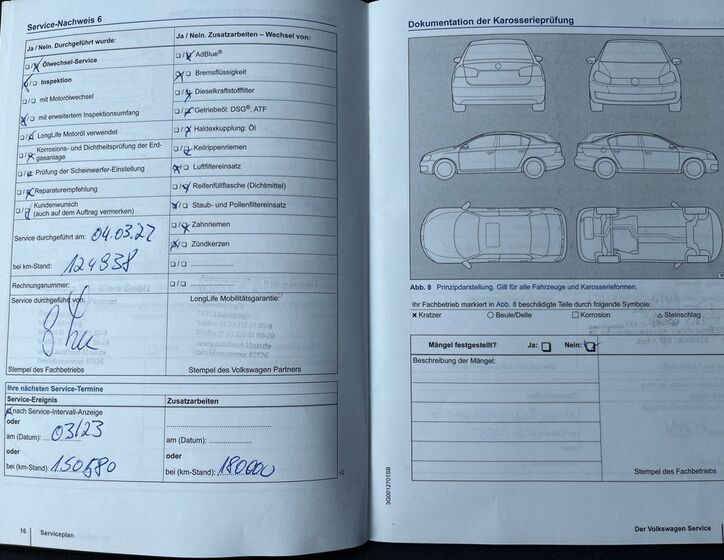 Service-Nachweis 6
Ja / Nein. Durchgeführt wurde:
Ölwechsel-Service
Inspektion
mit Motorölwechsel
mit erweitertem Inspektionsumfang
LongLife Motoröl verwendet
Korrosions- und Dichtheitsprüfung der Erd-
gasanlage
Prüfung der Scheinwerfer-Einstellung
Reparaturempfehlung
Kundenwunsch
(auch auf dem Auftrag vermerken)
Service durchgeführt am: 04.03.22
bei km-Stand: 124938
Rechnungsnummer:
Service durchgeführt von:
Stempel des Fachbetriebs
Ja / Nein. Zusatzarbeiten – Wechsel von:
AdBlue®
Bremsflüssigkeit
Dieselkraftstofffilter
Getriebeöl: DSG®, ATF
Haldexkupplung: Öl
Keilrippenriemen
Luftfiltereinsatz
Reifenfüllflasche (Dichtmittel)
Staub- und Pollenfiltereinsatz
Zahnriemen
Zündkerzen
LongLife Mobilitätsgarantie:
Stempel des Volkswagen Partners
Ihre nächsten Service-Termine
Service-Ereignis
nach Service-Intervall-Anzeige
oder
am (Datum): 03/23
oder
bei (km-Stand): 150580
Zusatzarbeiten
am (Datum):
oder
bei (km-Stand): 180000
16 Serviceplan
Dokumentation der Karosserieprüfung
Abb. 8 Prinzipdarstellung. Gilt für alle Fahrzeuge und Karosserieformen.
Ihr Fachbetrieb markiert in Abb. 8 beschädigte Teile durch folgende Symbole:
× Kratzer ○ Beule/Delle □ Korrosion △ Steinschlag
Mängel festgestellt? Ja: □ Nein: □
Beschreibung der Mängel:
Stempel des Fachbetriebs
3G0012701SB
Der Volkswagen Service